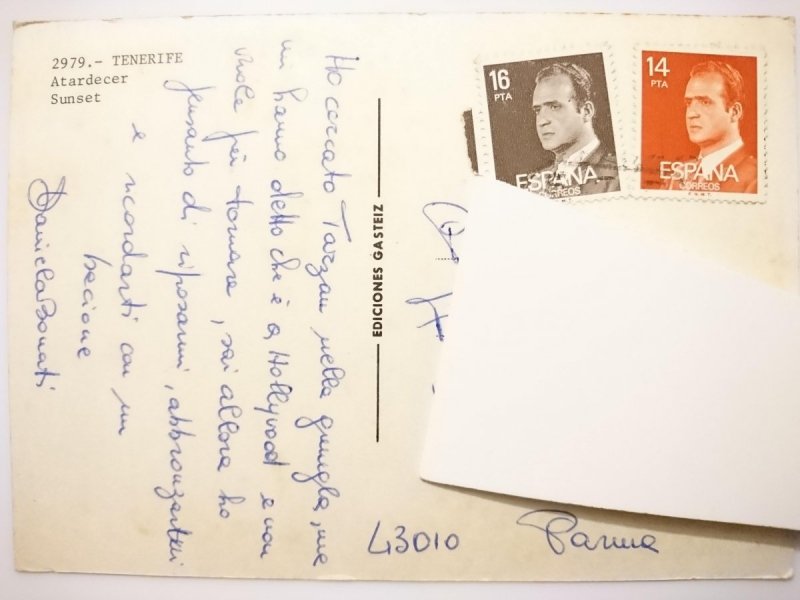 2979.- TENERIFE
Atardecer
Sunset
Ho cercato Tarzan nella giungla, ma
mi hanno detto che è a Hollywood e non
vuole più tornare, sai allora ho
pensato di riposarmi, abbronzarmi
e ricordarti con un
bacione
Daniela Bonati
EDICIONES GASTEIZ
16
PTA
ESPAÑA
CORREOS
14
PTA
ESPAÑA
CORREOS
F.N.M.T.
43010 Parma